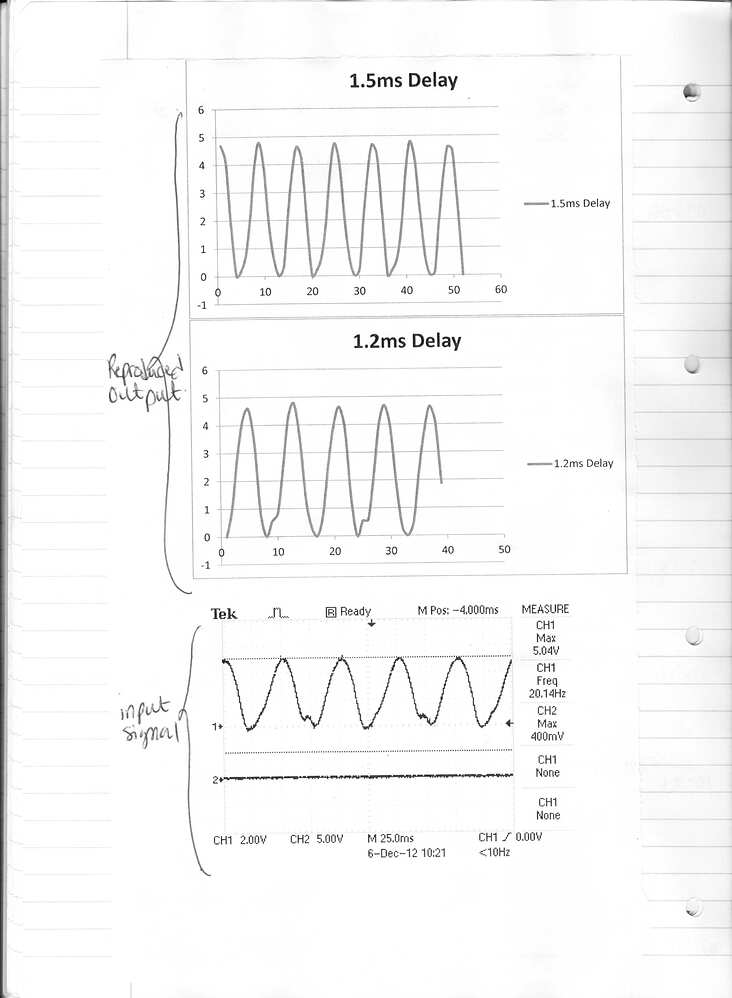 1.5ms Delay
6
5
4
3
2
1
0
-1
0 10 20 30 40 50 60
1.5ms Delay
1.2ms Delay
6
5
4
3
2
1
0
-1
0 10 20 30 40 50
1.2ms Delay
Reproduced
Output
Tek R Ready M Pos: -4.000ms MEASURE
CH1
Max
5.04V
CH1
Freq
20.14Hz
CH2
Max
400mV
CH1
None
CH1
None
1
2
CH1 2.00V CH2 5.00V M 25.0ms CH1 0.00V
6-Dec-12 10:21 <10Hz
input
signal